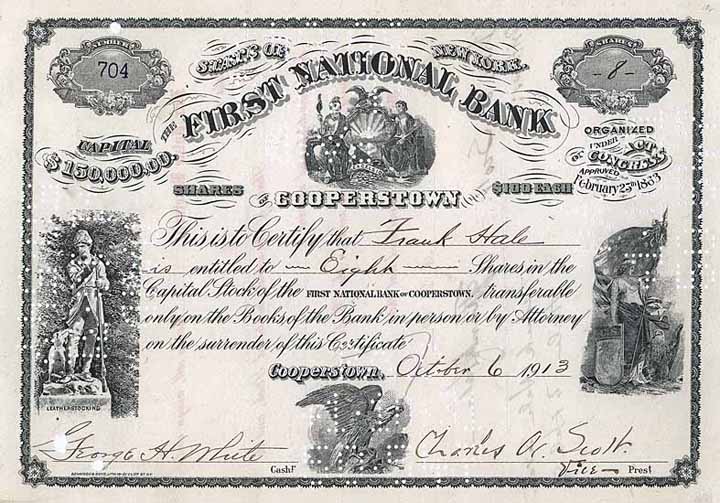 NUMBER
704
STATE OF NEW YORK.
SHARES
-8-
THE FIRST NATIONAL BANK
CAPITAL
$150,000.00.
ORGANIZED
UNDER
ACT
OF CONGRESS
APPROVED
February 25th 1863
SHARES
$100 EACH
OF COOPERSTOWN
This is to Certify that Frank Hale
is entitled to Eight Shares in the
Capital Stock of the FIRST NATIONAL BANK OF COOPERSTOWN. transferable
only on the Books of the Bank in person or by Attorney
on the surrender of this Certificate
LEATHERSTOCKING
Cooperstown, October 6 1913
George H. White Cashr
Charles A. Scott
Vice- Prest